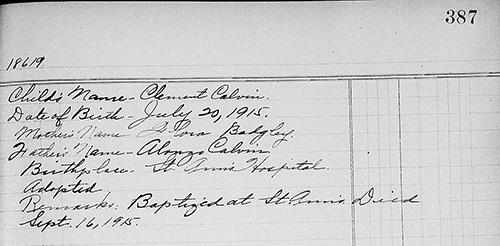 387
18619.
Child's Name - Clement Calvin.
Date of Birth - July 20, 1915.
Mother's Name - Flora Badgley.
Father's Name - Alonzo Calvin
Birthplace - St. Ann's Hospital.
Adopted
Remarks: Baptized at St Ann's. Died
Sept. 16, 1915.